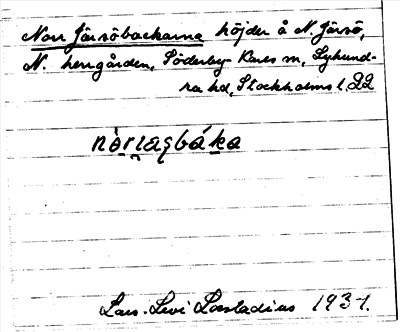 Norr Järsöbackarna höjder å N. Järsö,
N. herrgården, Söderby-Karls sn, Lyhund-
ra hd, Stockholms l. 22
Lars-Levi Læstadius 1937.